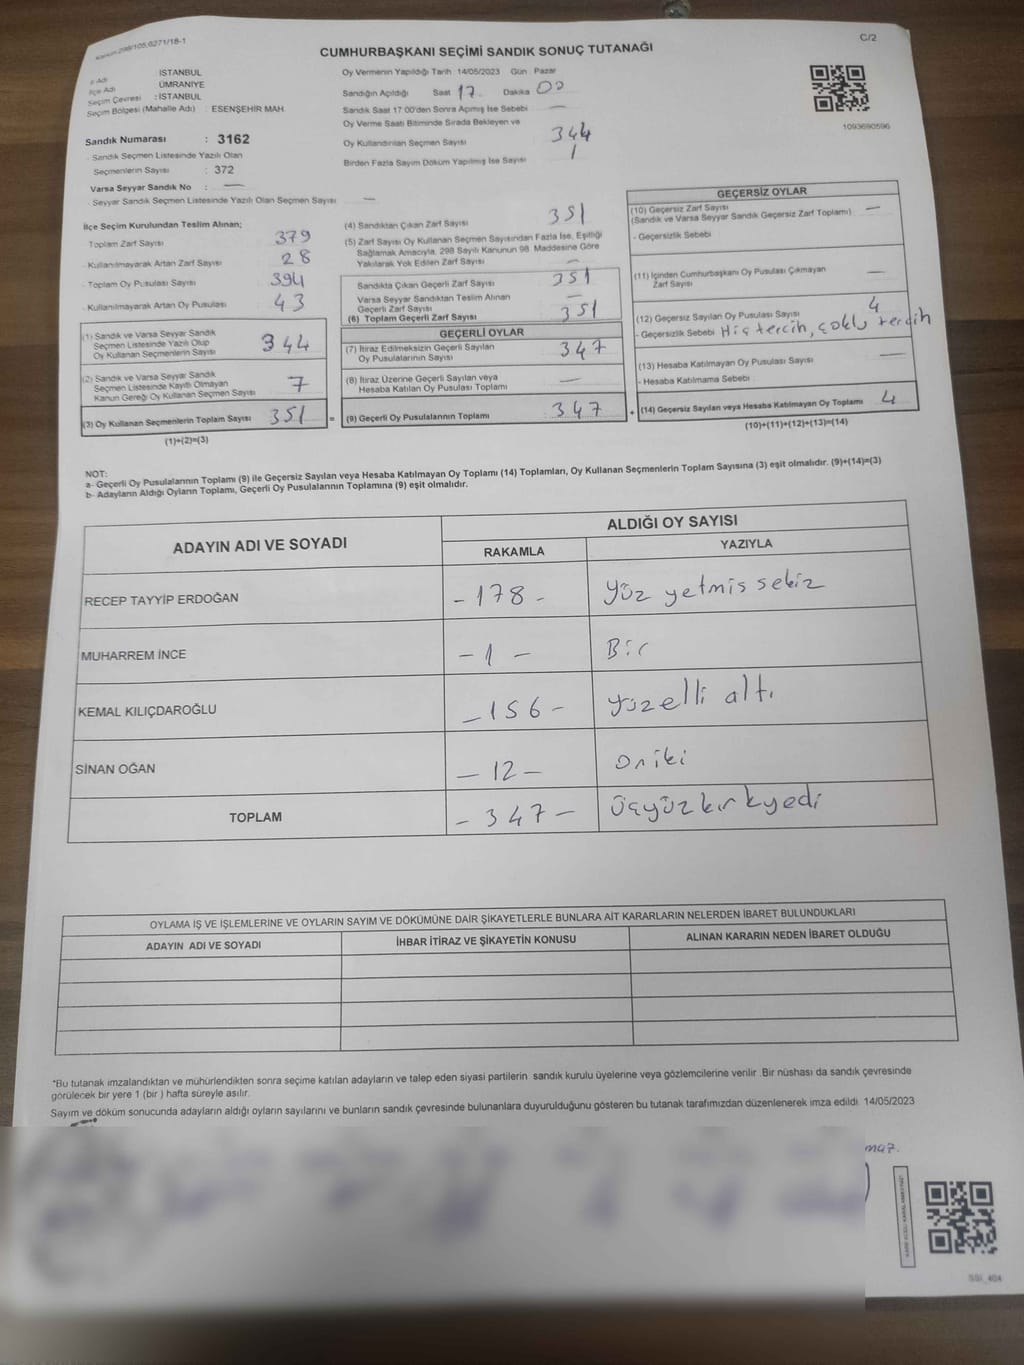 Kanun:298/105,6271/18-1
C/2
CUMHURBAŞKANI SEÇİMİ SANDIK SONUÇ TUTANAĞI
İl Adı İSTANBUL
İlçe Adı ÜMRANİYE
Seçim Çevresi : İSTANBUL
Seçim Bölgesi (Mahalle Adı) : ESENŞEHİR MAH.
Sandık Numarası : 3162
- Sandık Seçmen Listesinde Yazılı Olan
Seçmenlerin Sayısı : 372
Varsa Seyyar Sandık No : —
- Seyyar Sandık Seçmen Listesinde Yazılı Olan Seçmen Sayısı —
Oy Vermenin Yapıldığı Tarih 14/05/2023 Gün Pazar
Sandığın Açıldığı Saat 17. Dakika 00
Sandık Saat 17:00'den Sonra Açılmış İse Sebebi —
Oy Verme Saati Bitiminde Sırada Bekleyen ve
Oy Kullandırılan Seçmen Sayısı 344
Birden Fazla Sayım Döküm Yapılmış İse Sayısı 1
1093690596
İlçe Seçim Kurulundan Teslim Alınan;
Toplam Zarf Sayısı 379
- Kullanılmayarak Artan Zarf Sayısı 28
- Toplam Oy Pusulası Sayısı 394
- Kullanılmayarak Artan Oy Pusulası 43
(1) Sandık ve Varsa Seyyar Sandık
Seçmen Listesinde Yazılı Olup
Oy Kullanan Seçmenlerin Sayısı 344
(2) Sandık ve Varsa Seyyar Sandık
Seçmen Listesinde Kayıtlı Olmayan
Kanun Gereği Oy Kullanan Seçmen Sayısı 7
(3) Oy Kullanan Seçmenlerin Toplam Sayısı 351 =
(1)+(2)=(3)
(4) Sandıktan Çıkan Zarf Sayısı 351
(5) Zarf Sayısı Oy Kullanan Seçmen Sayısından Fazla İse, Eşitliği
Sağlamak Amacıyla, 298 Sayılı Kanunun 98. Maddesine Göre
Yakılarak Yok Edilen Zarf Sayısı —
Sandıkta Çıkan Geçerli Zarf Sayısı 351
Varsa Seyyar Sandıktan Teslim Alınan
Geçerli Zarf Sayısı —
(6) Toplam Geçerli Zarf Sayısı 351
GEÇERLİ OYLAR
(7) İtiraz Edilmeksizin Geçerli Sayılan
Oy Pusulalarının Sayısı 347
(8) İtiraz Üzerine Geçerli Sayılan veya
Hesaba Katılan Oy Pusulası Toplamı —
(9) Geçerli Oy Pusulalarının Toplamı 347 +
GEÇERSİZ OYLAR
(10) Geçersiz Zarf Sayısı
(Sandık ve Varsa Seyyar Sandık Geçersiz Zarf Toplamı) —
- Geçersizlik Sebebi
(11) İçinden Cumhurbaşkanı Oy Pusulası Çıkmayan
Zarf Sayısı —
(12) Geçersiz Sayılan Oy Pusulası Sayısı 4
- Geçersizlik Sebebi Hiç tercih, çoklu tercih
(13) Hesaba Katılmayan Oy Pusulası Sayısı —
- Hesaba Katılmama Sebebi
(14) Geçersiz Sayılan veya Hesaba Katılmayan Oy Toplamı 4
(10)+(11)+(12)+(13)=(14)
NOT:
a- Geçerli Oy Pusulalarının Toplamı (9) ile Geçersiz Sayılan veya Hesaba Katılmayan Oy Toplamı (14) Toplamları, Oy Kullanan Seçmenlerin Toplam Sayısına (3) eşit olmalıdır. (9)+(14)=(3)
b- Adayların Aldığı Oyların Toplamı, Geçerli Oy Pusulalarının Toplamına (9) eşit olmalıdır.
ADAYIN ADI VE SOYADI ALDIĞI OY SAYISI
RAKAMLA YAZIYLA
RECEP TAYYİP ERDOĞAN - 178 - Yüz yetmis sekiz
MUHARREM İNCE - 1 - Bir
KEMAL KILIÇDAROĞLU - 156 - yüzelli altı
SİNAN OĞAN - 12 - oniki
TOPLAM - 347 - üçyüzkırkyedi
OYLAMA İŞ VE İŞLEMLERİNE VE OYLARIN SAYIM VE DÖKÜMÜNE DAİR ŞİKAYETLERLE BUNLARA AİT KARARLARIN NELERDEN İBARET BULUNDUKLARI
ADAYIN ADI VE SOYADI İHBAR İTİRAZ VE ŞİKAYETİN KONUSU ALINAN KARARIN NEDEN İBARET OLDUĞU
*Bu tutanak imzalandıktan ve mühürlendikten sonra seçime katılan adayların ve talep eden siyasi partilerin sandık kurulu üyelerine veya gözlemcilerine verilir. Bir nüshası da sandık çevresinde
görülecek bir yere 1 (bir ) hafta süreyle asılır.
Sayım ve döküm sonucunda adayların aldığı oyların sayılarını ve bunların sandık çevresinde bulunanlara duyurulduğunu gösteren bu tutanak tarafımızdan düzenlenerek imza edildi. 14/05/2023